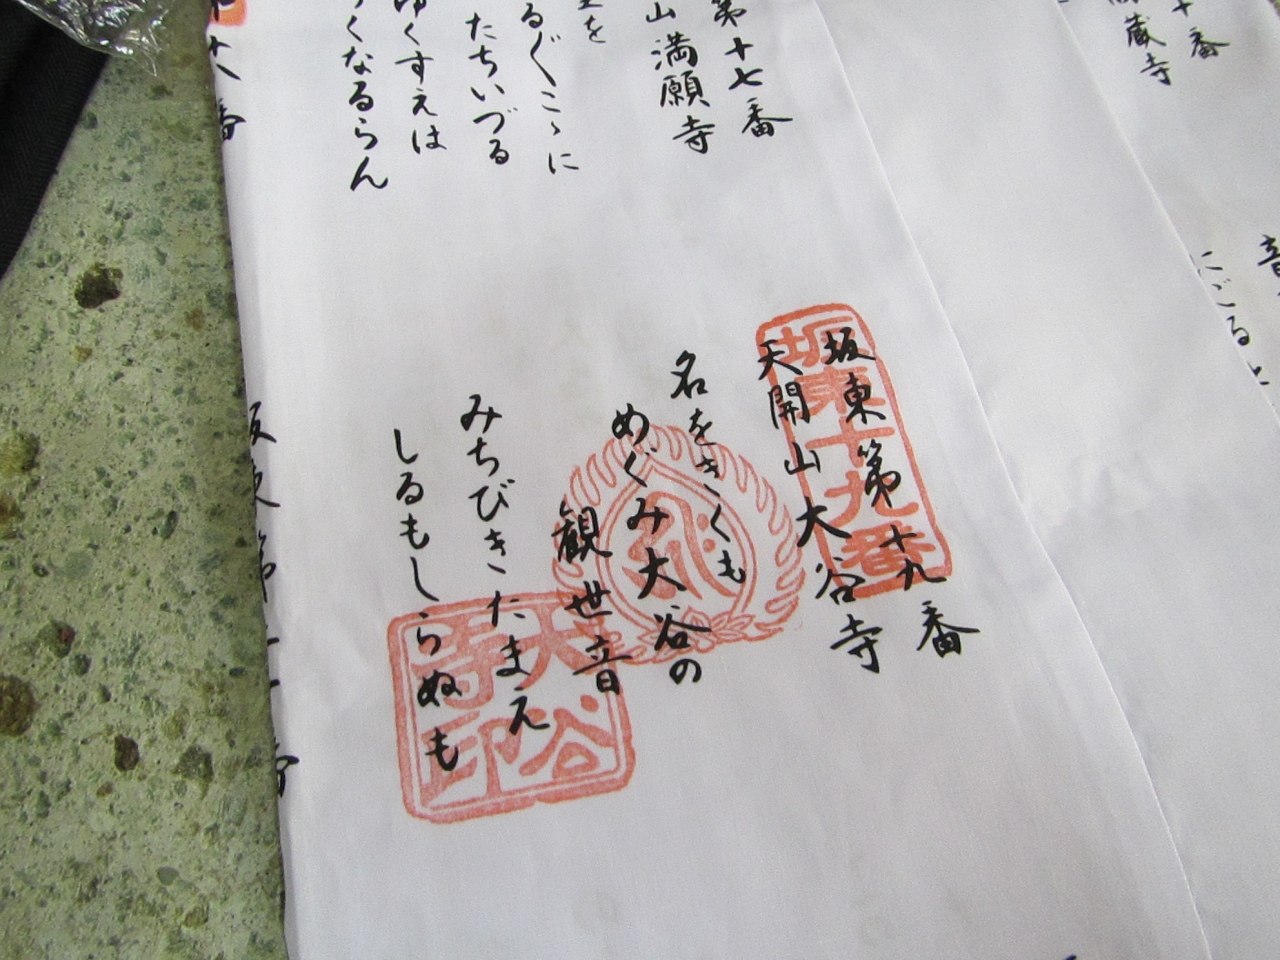 十番
蔵寺
にごる
第十七番
山満願寺
を
るぐこゝに
たちいづる
ゆくすえは
くなるらん
坂東第十九番
天開山大谷寺
名をきくも
めぐみ大谷の
観世音
みちびきたまえ
しるもしらぬも
坂東十九番
大谷寺印
十八番